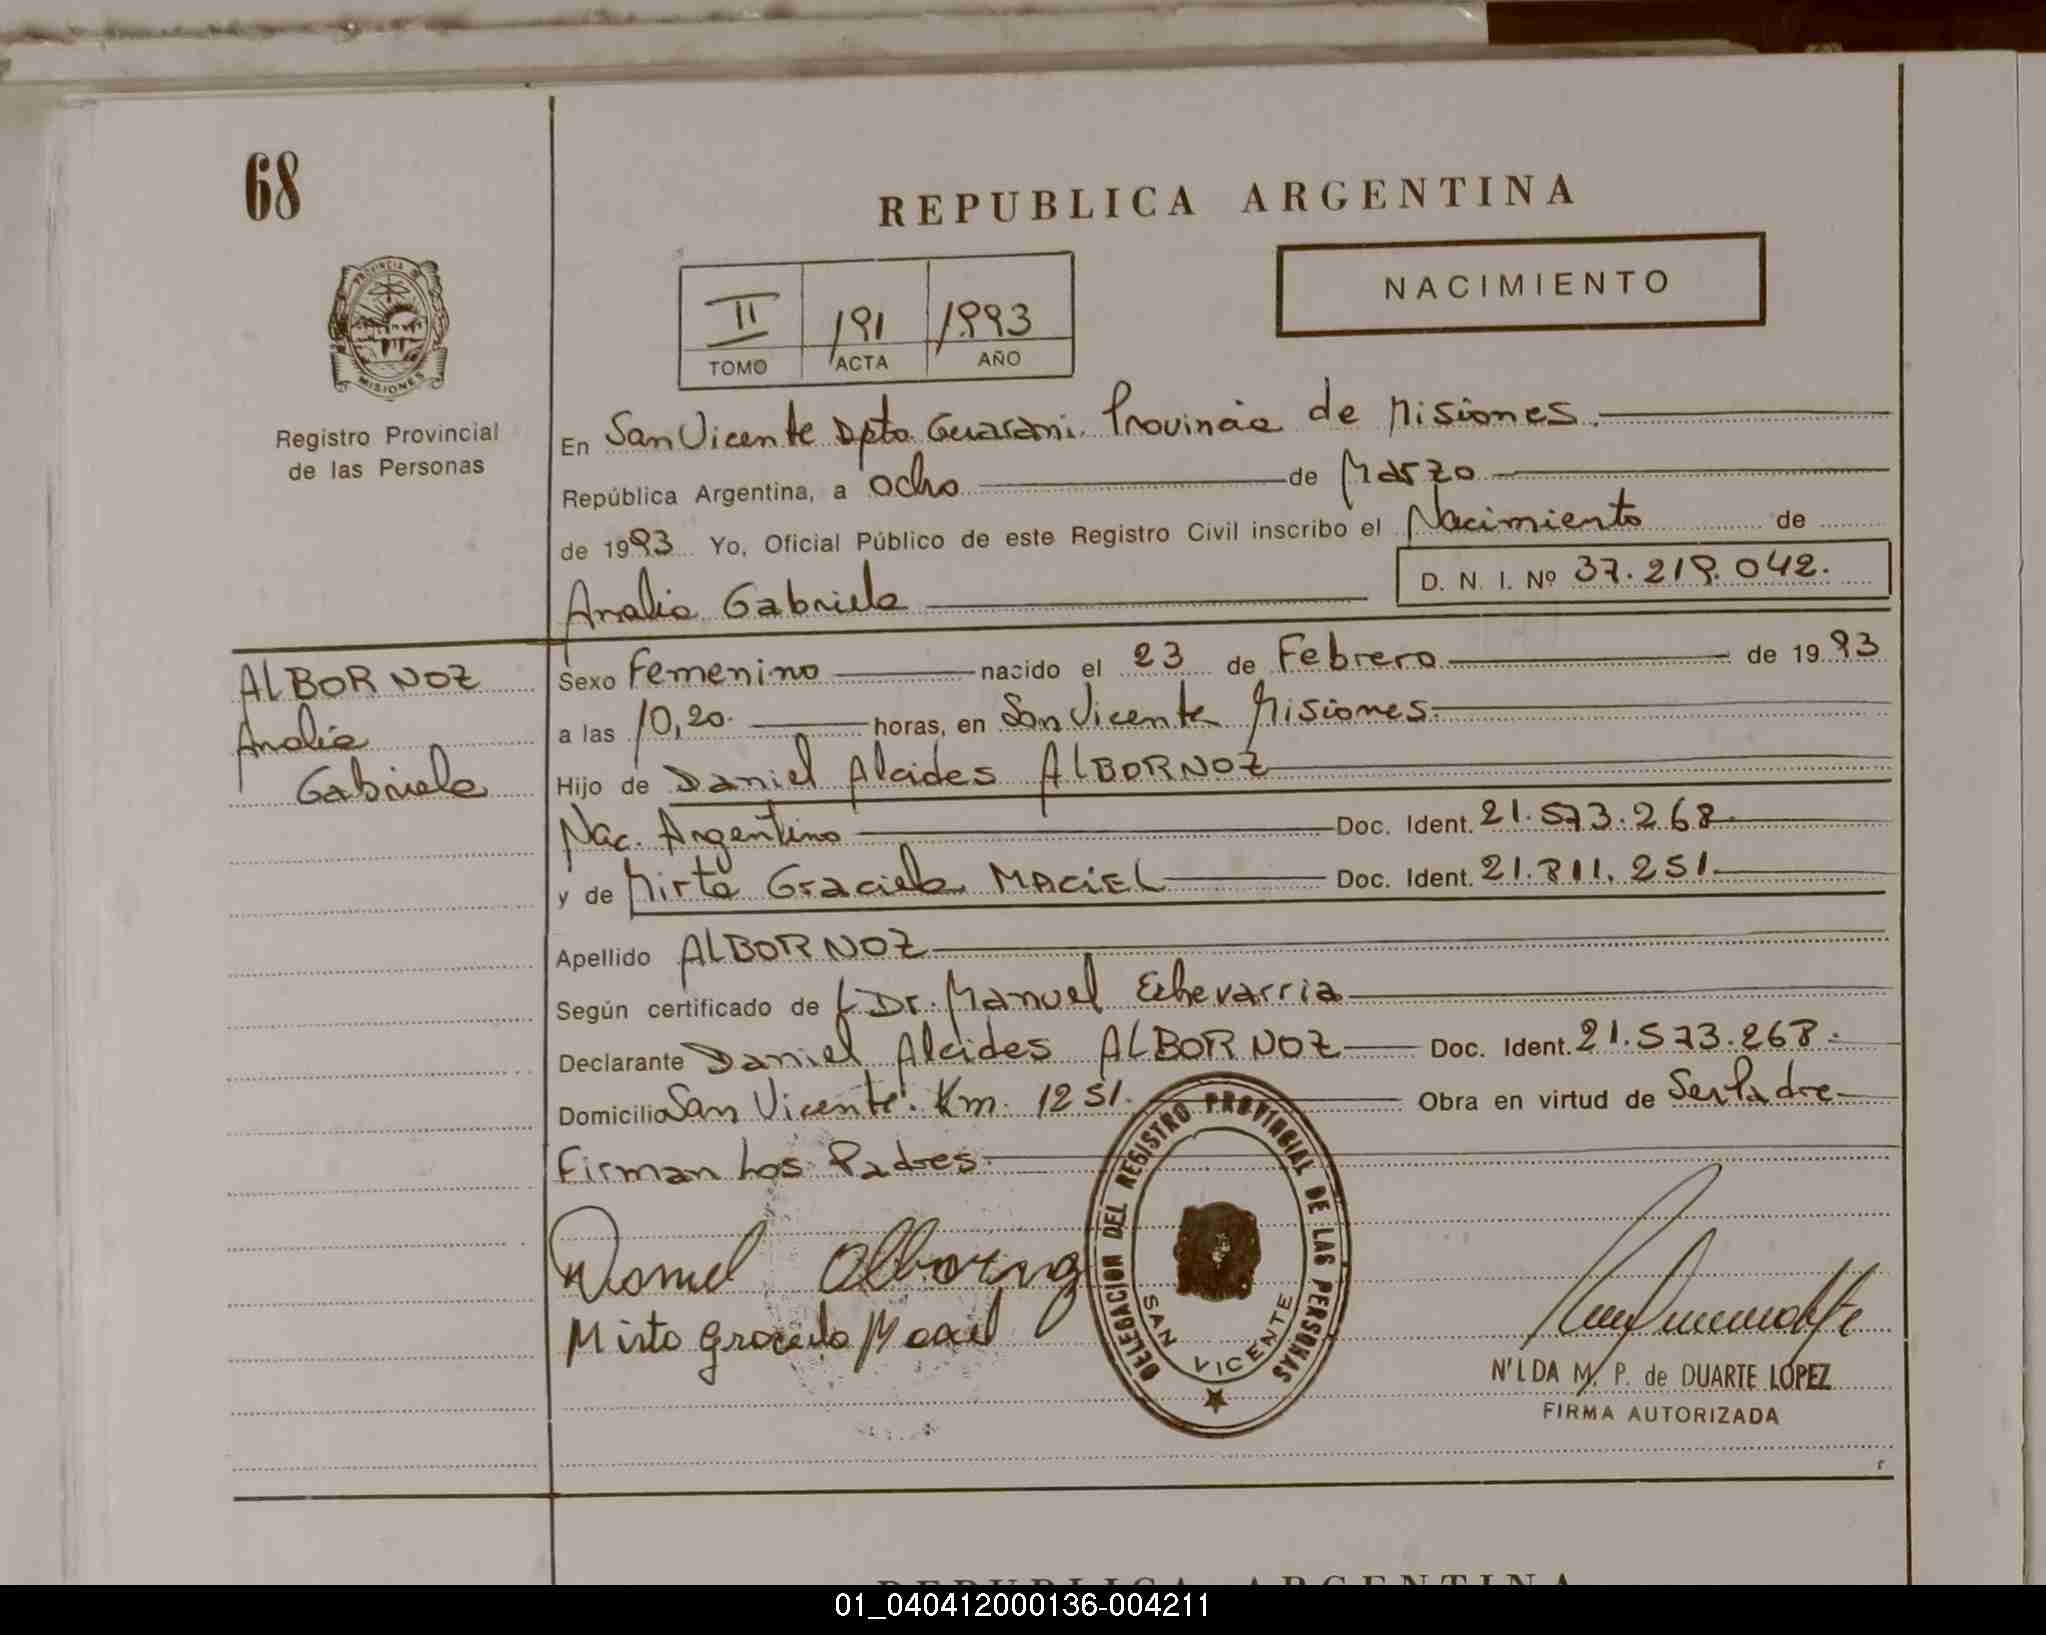 68
REPUBLICA ARGENTINA
NACIMIENTO
II 191 1993
TOMO ACTA AÑO
PROVINCIA DE MISIONES
Registro Provincial
de las Personas
En San Vicente Dpto. Guarani. Provincia de Misiones.
República Argentina, a ocho de Marzo
de 1993 Yo, Oficial Público de este Registro Civil inscribo el Nacimiento de
Analia Gabriela D. N. I. Nº 37.219.042.
ALBORNOZ
Analia
Gabriela
Sexo Femenino nacido el 23 de Febrero de 1993
a las 10,20. horas, en San Vicente Misiones.
Hijo de Daniel Alcides ALBORNOZ
Nac. Argentino Doc. Ident. 21.573.268.
y de Mirta Graciela MACIEL Doc. Ident. 21.811.251.
Apellido ALBORNOZ
Según certificado de L Dr. Manuel Echevarria
Declarante Daniel Alcides ALBORNOZ Doc. Ident. 21.573.268.
Domicilio San Vicente. Km. 1251. Obra en virtud de Ser Padre
Firman Los Padres.
Daniel Albornoz
Mirta Graciela Maciel
DELEGACION DEL REGISTRO PROVINCIAL DE LAS PERSONAS
SAN VICENTE
N'LDA M. P. de DUARTE LOPEZ
FIRMA AUTORIZADA
REPUBLICA ARGENTINA
01_040412000136-004211